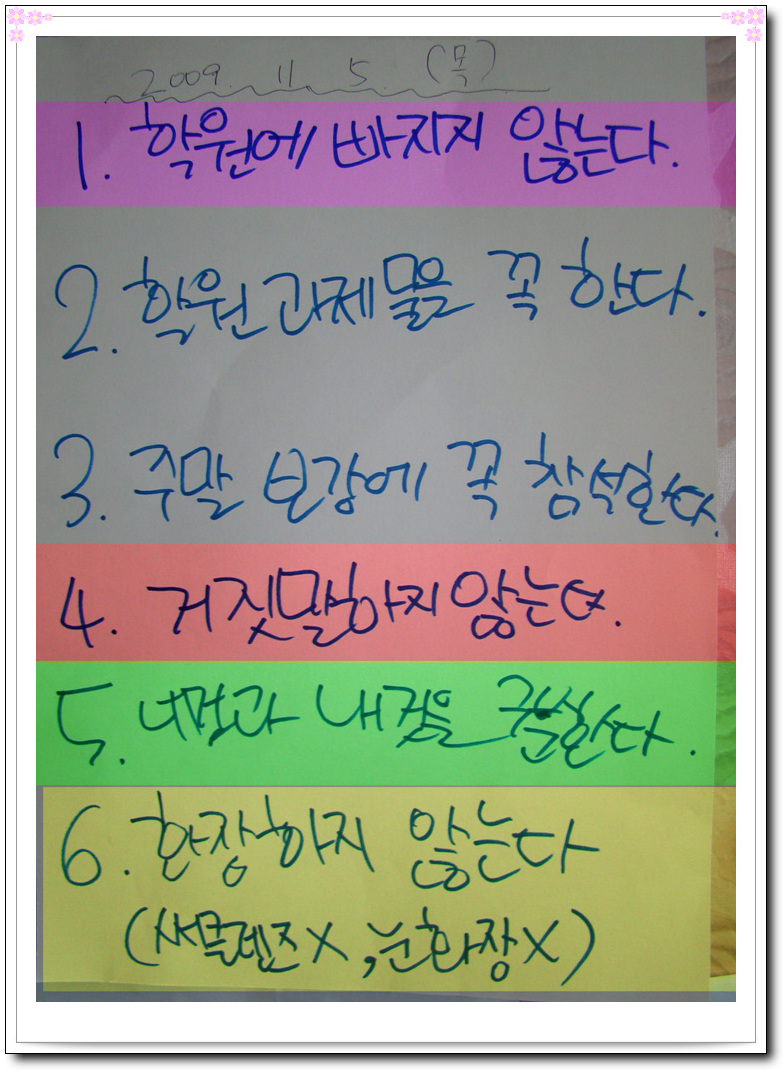 2009. 11. 5. (목)
1. 학원에 빠지지 않는다.
2. 학원 과제물을 꼭 한다.
3. 주말 보강에 꼭 참석한다.
4. 거짓말하지 않는다.
5. 내것을 구분한다.
6. 화장하지 않는다
(써클렌즈 X, 눈화장 X)